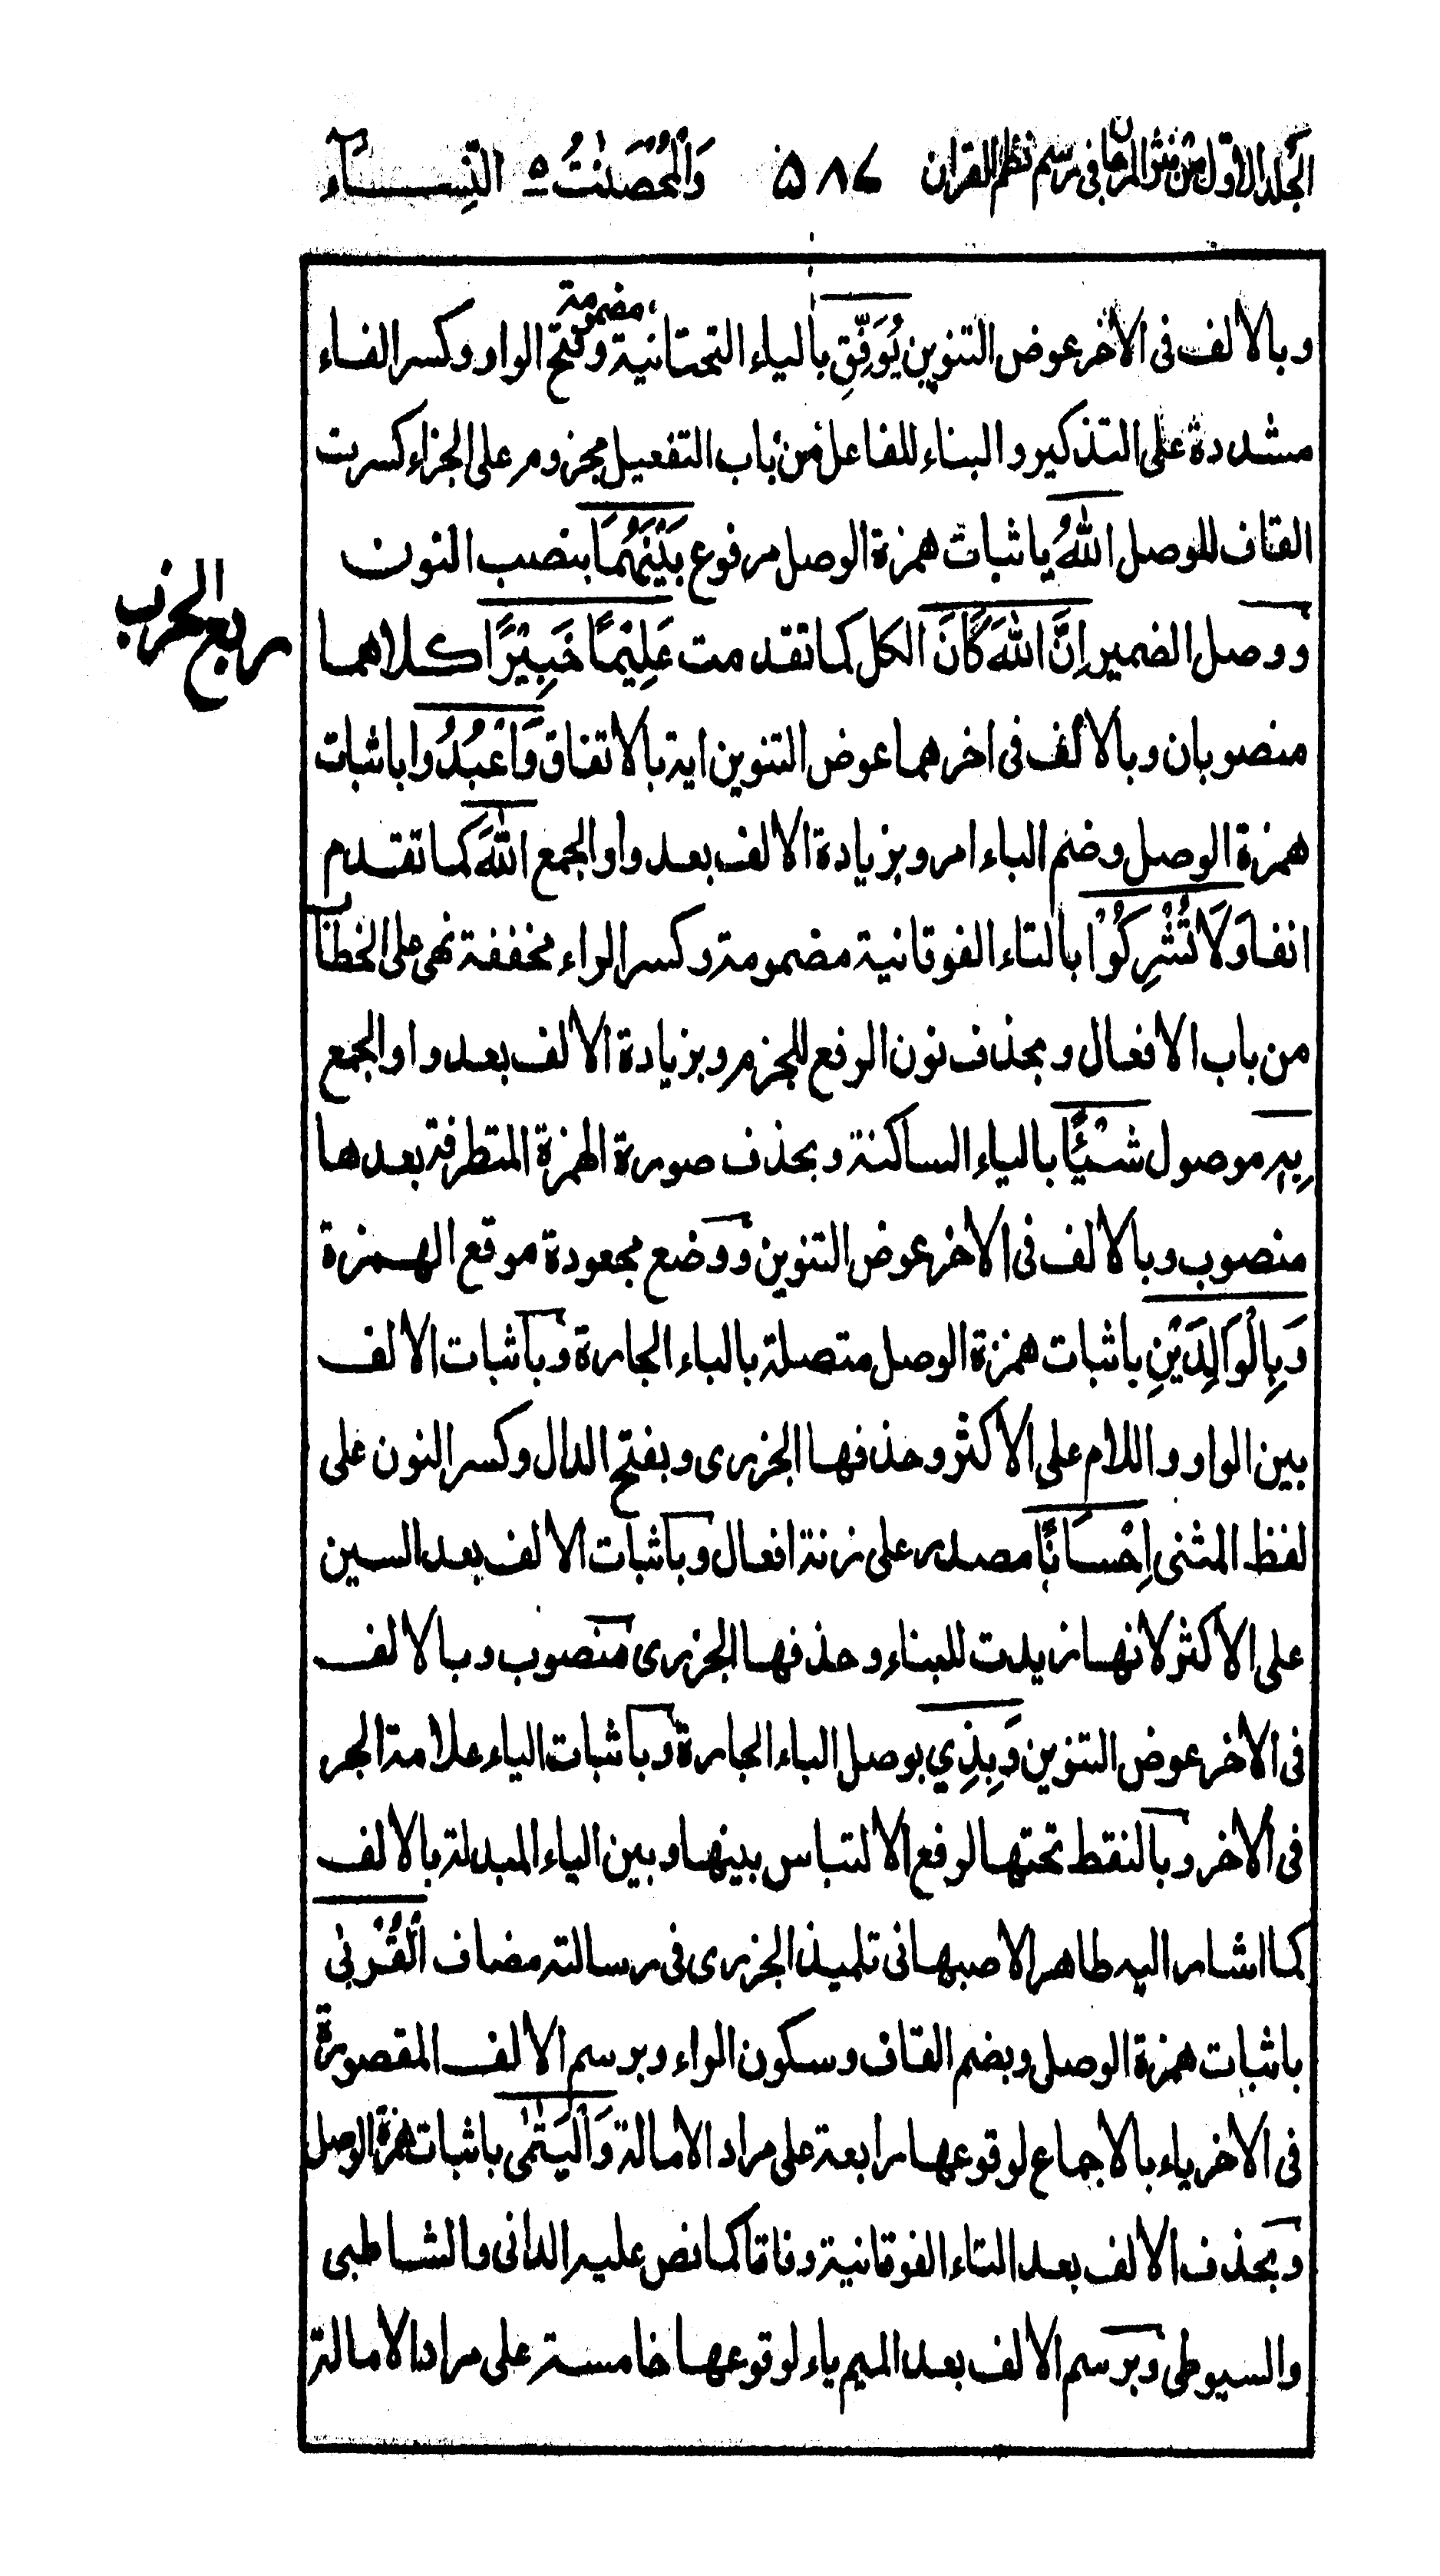 الجلد الاول من نثر المرجان فى رسم نظم القران ٥٨٤ وَالْمُحْصَنٰتُ ٥ النِّسَاء
وبالالف فى الاخر عوض التنوين يُوَفِّقِ بالياء التحتانية مضمومة وفتح الواو وكسر الفاء
مشددة على التذكير والبناء للفاعل من باب التفعيل مجزوم على الجزاء كسرت
القاف للوصل اللهُ باثبات همزة الوصل مرفوع بَيْنَهُمَا بنصب النون
ووصل الضمير اِنَّ اللهَ كَانَ الكل كما تقدمت عَلِيْمًا خَبِيْرًا كلاهما
ربع الحزب
منصوبان وبالالف فى اخرهما عوض التنوين اية بالاتفاق وَاعْبُدُوا باثبات
همزة الوصل وضم الباء امر وبزيادة الالف بعد واو الجمع اللهَ كما تقدم
انفا وَلَا تُشْرِكُوْا بالتاء الفوقانية مضمومة وكسر الراء مخففة نهى على الخطاب
من باب الافعال وبحذف نون الرفع للجزم وبزيادة الالف بعد واو الجمع
بِهٖ موصول شَيْئًا بالياء الساكنة وبحذف صورة الهمزة المتطرفة بعدها
منصوب وبالالف فى الاخر عوض التنوين ووضع مجعودة موقع الهمزة
وَبِالْوَالِدَيْنِ باثبات همزة الوصل متصلة بالباء الجارة وباثبات الالف
بين الواو واللام على الاكثر وحذفها الجزرى وبفتح الدال وكسر النون على
لفظ المثنى اِحْسَانًا مصدر على زنة افعال وباثبات الالف بعد السين
على الاكثر لانها زيدت للبناء وحذفها الجزرى منصوب وبالالف
فى الاخر عوض التنوين وَبِذِي بوصل الباء الجارة وباثبات الياء علامة الجر
فى الاخر وبالنقط تحتها لرفع الالتباس بينها وبين الياء المبدلة بالالف
كما اشار اليه طاهر الاصبهانى تلميذ الجزرى فى رسالته مضاف الْقُرْبٰى
باثبات همزة الوصل وبضم القاف وسكون الراء وبرسم الالف المقصورة
فى الاخر ياء بالاجماع لوقوعها رابعة على مراد الامالة وَالْيَتٰمٰى باثبات همزة الوصل
وبحذف الالف بعد التاء الفوقانية وفاقا كما نص عليه الدانى والشاطبى
والسيوطى وبرسم الالف بعد الميم ياء لوقوعها خامسة على مراد الامالة